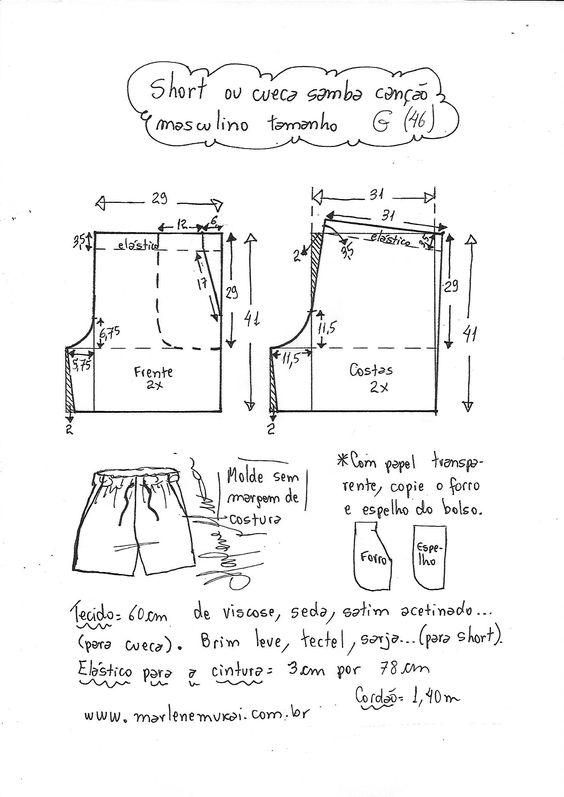 Short ou cueca samba canção
masculino tamanho G (46)
29
12
6
3,5
elástico
17
29
41
6,75
5,75
Frente
2x
2
31
31
elástico
2
3,5
29
41
11,5
11,5
Costas
2x
2
Molde sem
margem de
costura
*Com papel transpa-
rente, copie o forro
e espelho do bolso.
Forro
Espe-
lho
Tecido= 60cm de viscose, seda, satim acetinado...
(para cueca). Brim leve, tectel, sarja...(para short).
Elástico para a cintura= 3cm por 78cm
Cordão= 1,40m
www.marlenemukai.com.br